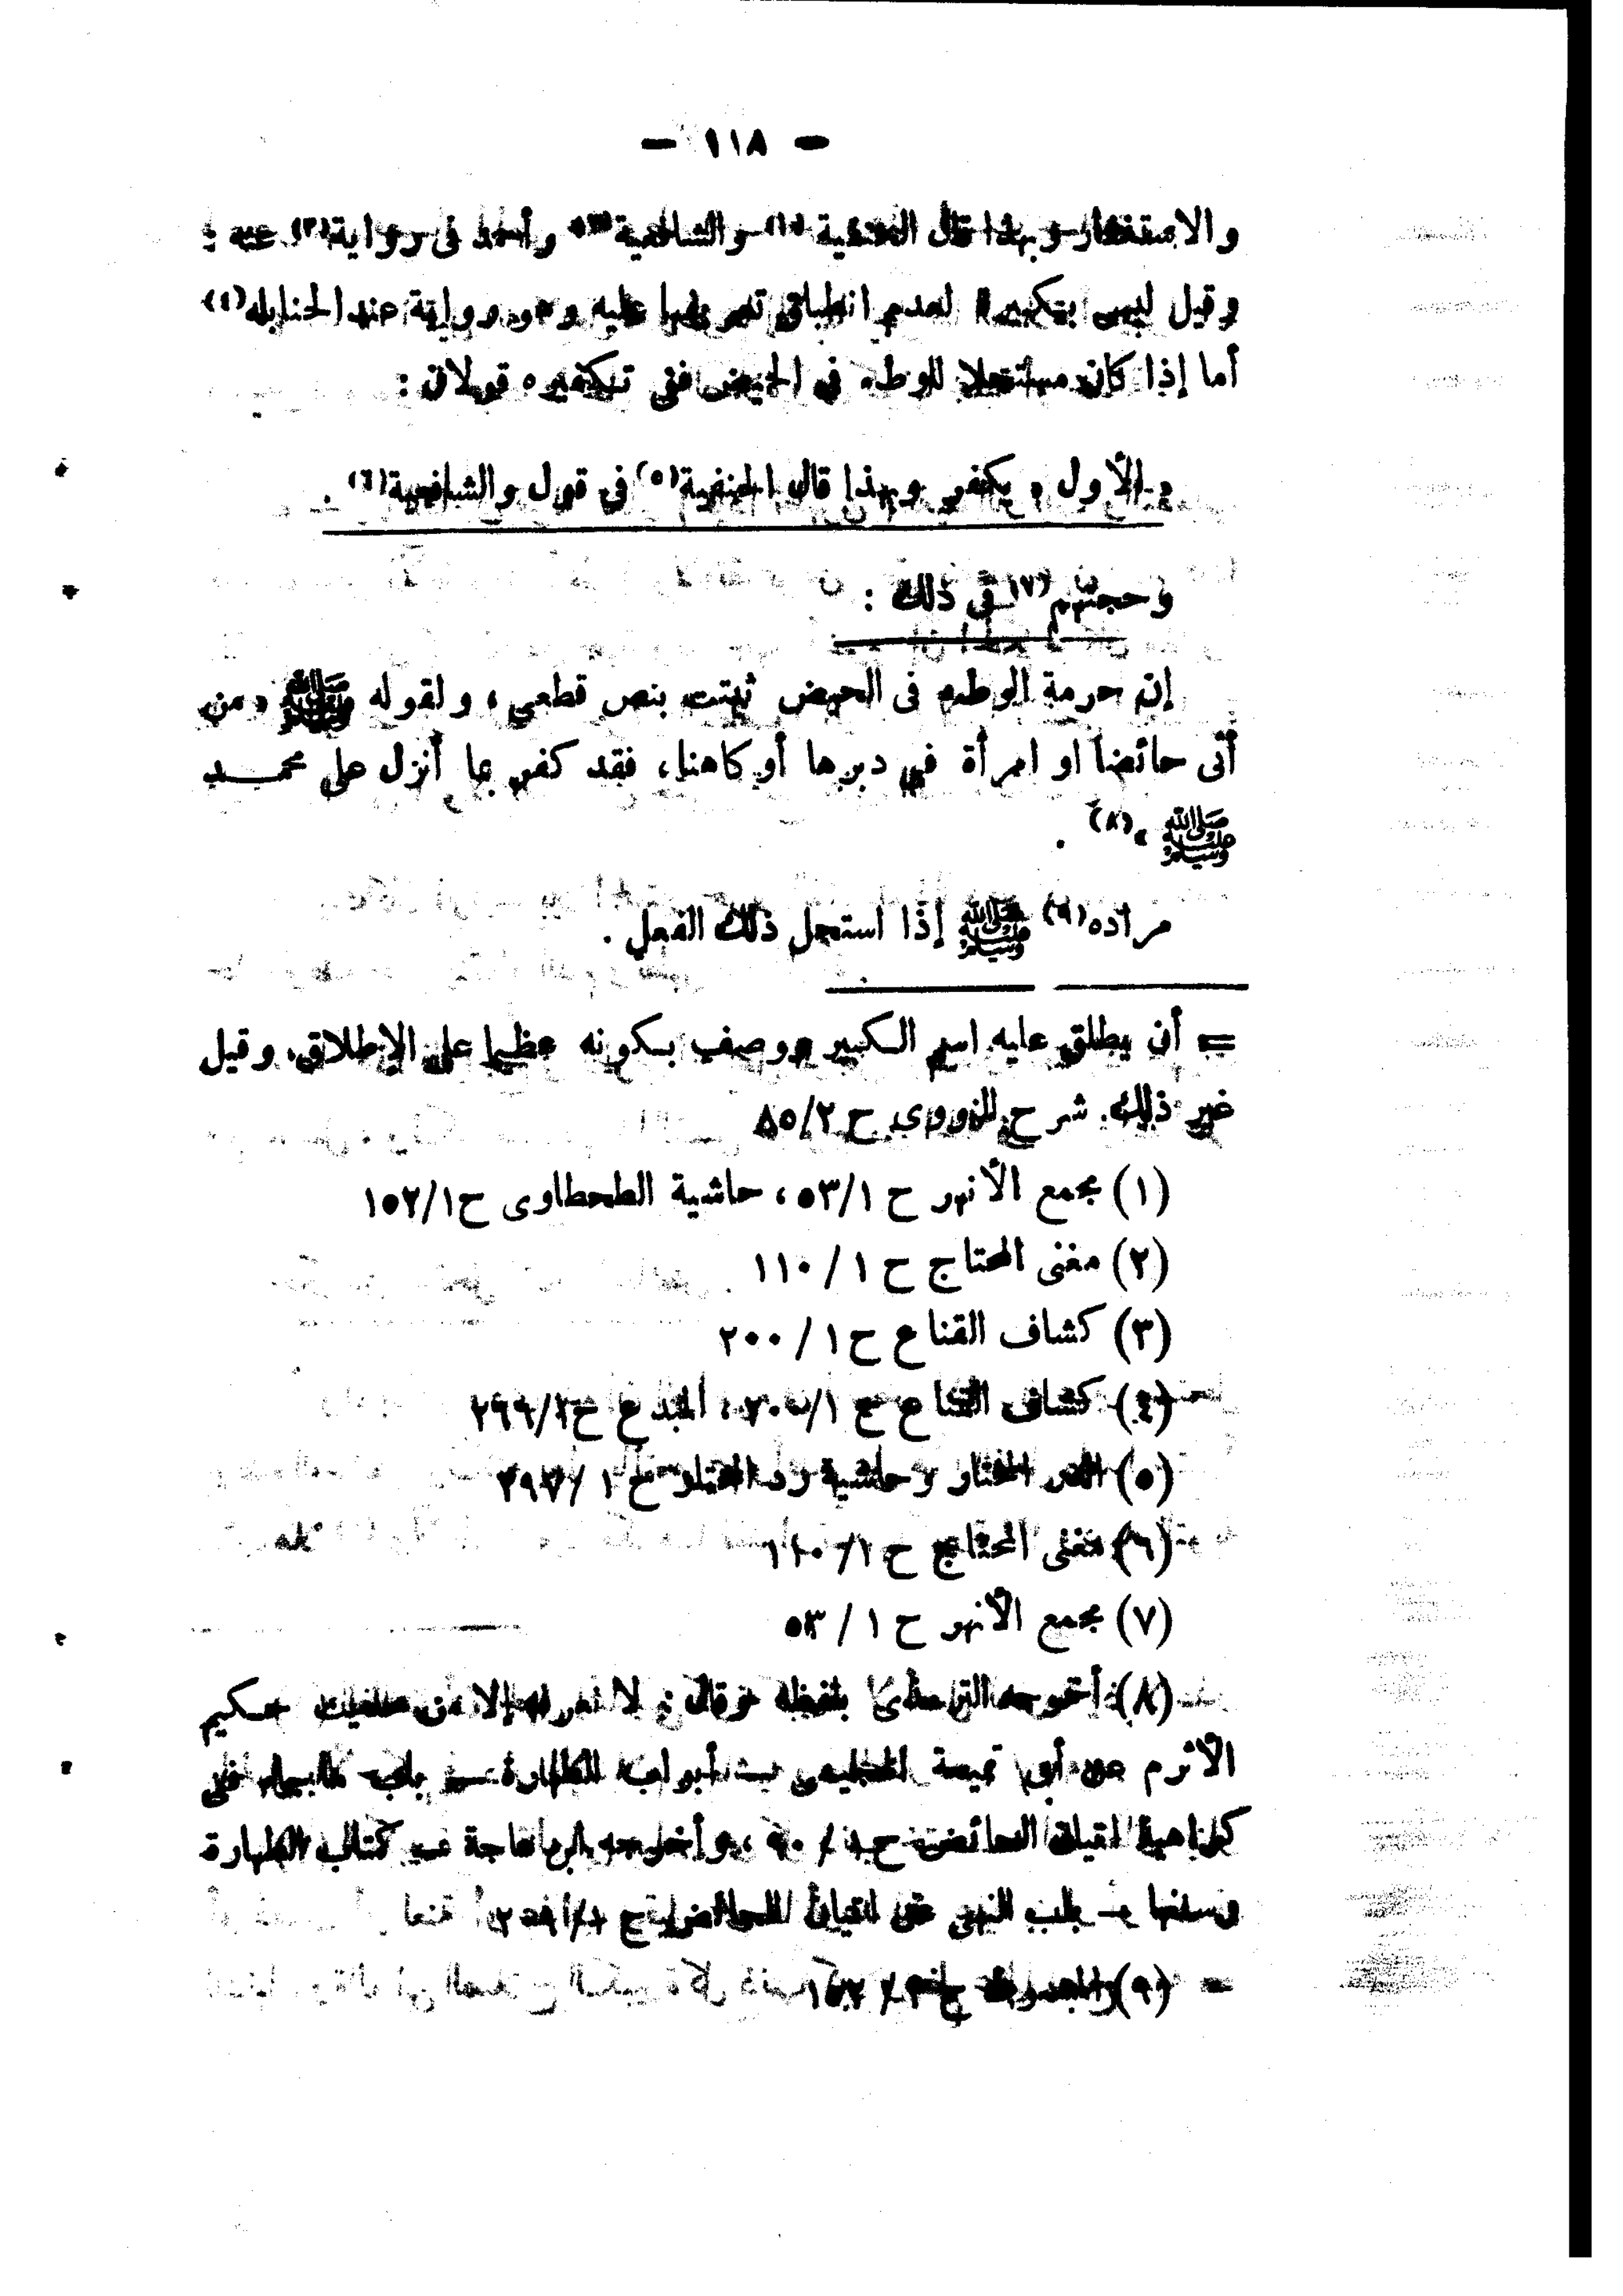 — ١١٨ —
والاستغفار وبهذا قال الحنفية (١) والشافعية (٢) وأحمد فى رواية (٣) عنه :
وقيل ليس بكبيرة لعدم انطباق تعريفها عليه وهو رواية عند الحنابله (٤)
أما إذا كان مستحلا للوطء فى الحيض ففى تكفيره قولان :
« الأول » يكفر وبهذا قال الحنفية (٥) فى قول والشافعية (٦) .
وحجتهم (٧) فى ذلك :
إن حرمة الوطء فى الحيض ثبتت بنص قطعي ، ولقوله ﷺ « من
أتى حائضاً او امرأة فى دبرها أو كاهنا ، فقد كفر بما أنزل على محمد
ﷺ » (٨) .
مراده (٩) ﷺ إذا استحل ذلك الفعل .
= أن يطلق عليه اسم الكبير ووصف بكونه عظيما على الإطلاق ، وقيل
غير ذلك . شرح النووي ح ٨٥/٢
(١) مجمع الأنهر ح ٥٣/١ ، حاشية الطحطاوى ح ١٥٢/١
(٢) مغنى المحتاج ح ١ / ١١٠
(٣) كشاف القناع ح ١ / ٢٠٠
(٤) كشاف القناع ح ٢٠٠/١ ، المبدع ح
(٥) الدر المختار وحاشية رد المحتار ح ١ /
(٦) مغنى المحتاج ح ١ / ١١٠
(٧) مجمع الأنهر ح ١ / ٥٣
(٨) أخرجه الترمذى بلفظه وقال : لا نعرفه إلا من حديث حكيم
الأثرم عن أبى تميمة الهجيمى – أبواب الطهارة – باب ما جاء فى
كراهية اتيان الحائض ح ١ / ٩٠ ، وأخرجه ابن ماجة – كتاب الطهارة
وسننها – باب النهى عن اتيان الحائض ح
= (٩)